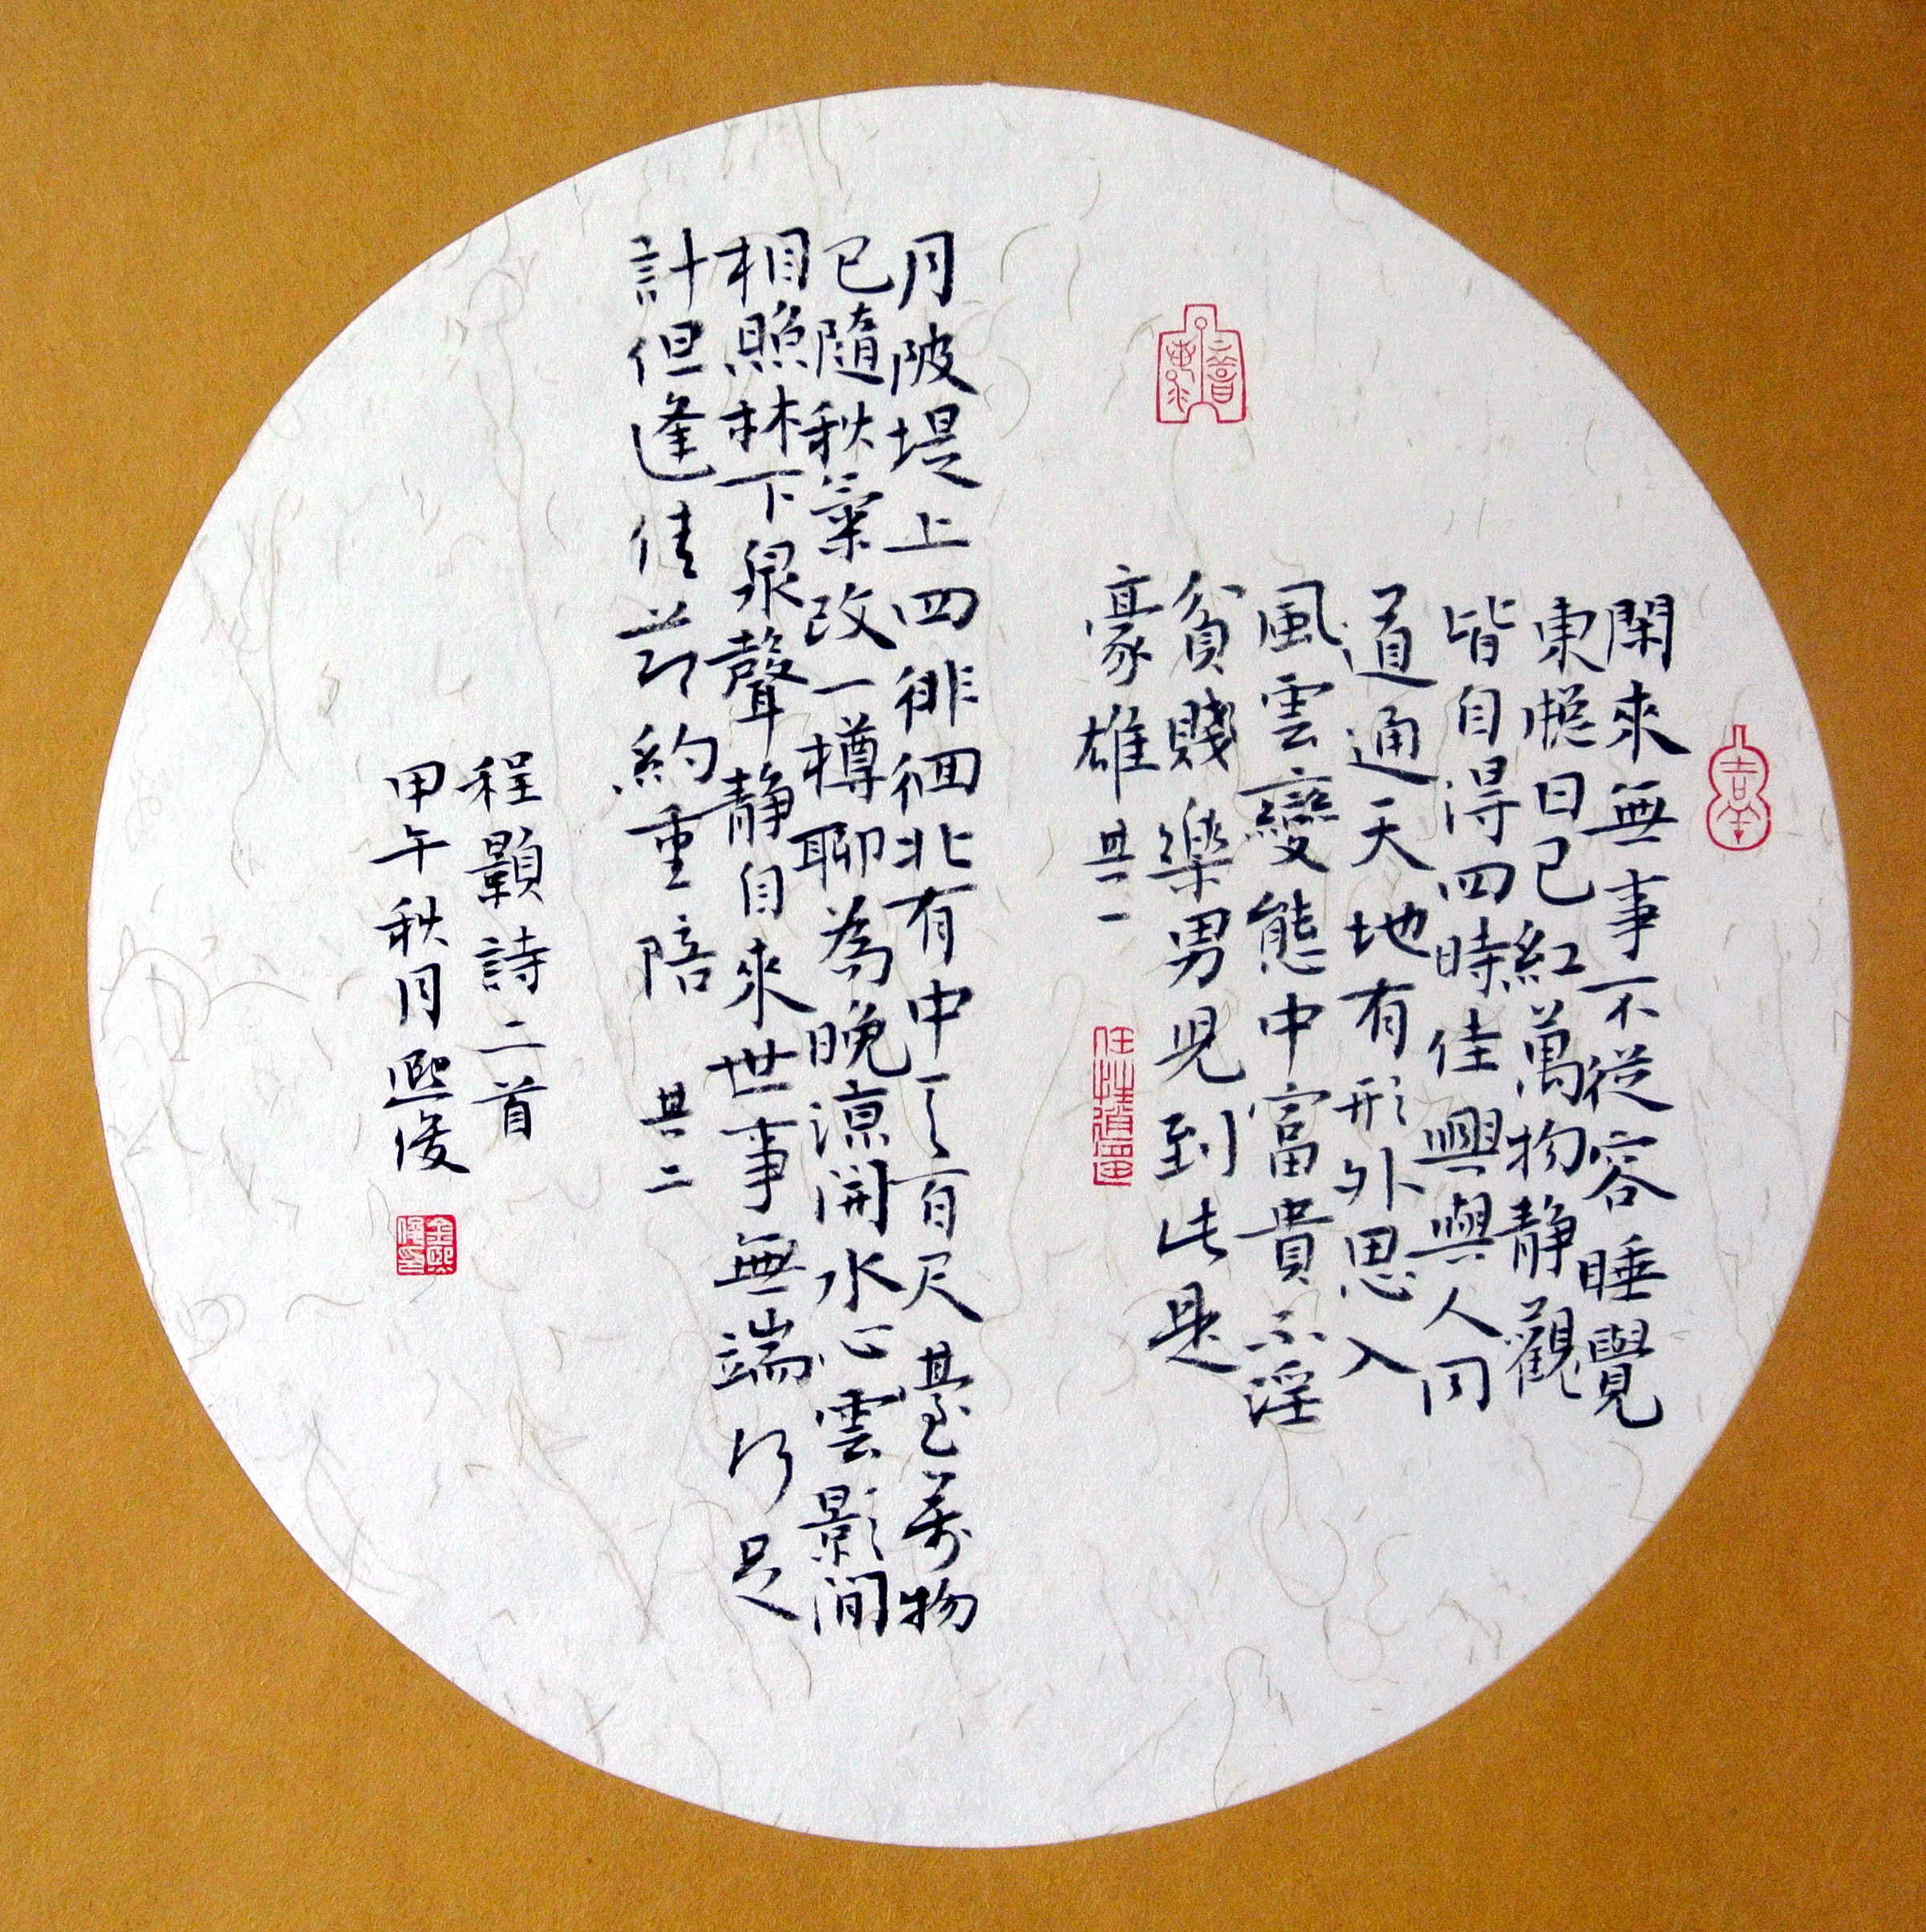 閑來無事不從容睡覺
東牕日已紅萬物靜觀
皆自得四時佳興與人同
道通天地有形外思入
風雲變態中富貴不淫
貧賤樂男兒到此是
豪雄 其一
月陂堤上四徘徊北有中天百尺臺萬物
已隨秋氣改一樽聊為晚涼開水心雲影閒
相照林下泉聲靜自來世事無端何足
計但逢佳節約重陪 其二
程顥詩二首
甲午秋月熙俊
任性逍遥
金熙俊印